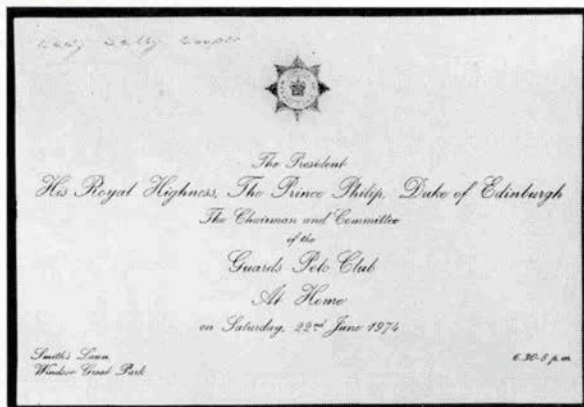 Lady Sally Cooper
The President
His Royal Highness, The Prince Philip, Duke of Edinburgh
The Chairman and Committee
of the
Guards Polo Club
At Home
on Saturday, 22nd June 1974
Smith's Lawn
Windsor Great Park
6.30-8 p.m.